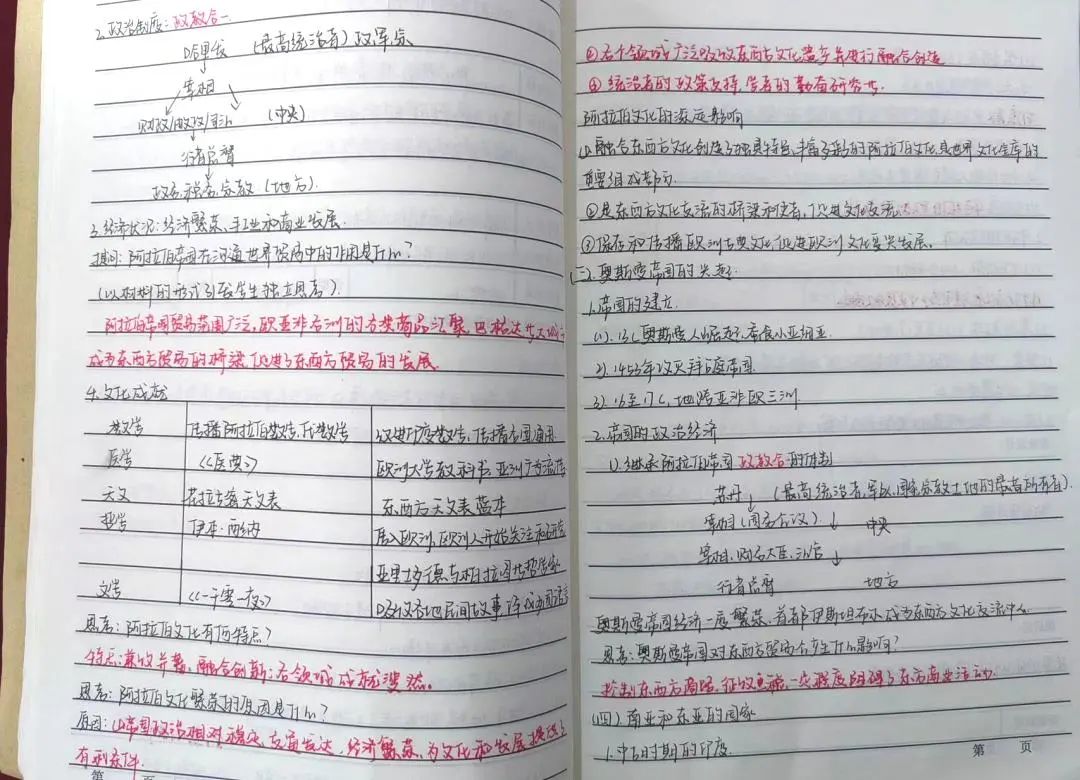 2.政治制度:政教合一
哈里发 (最高统治者) 政军宗
宰相
财政/邮政/司法 (中央)
行省总督
政务、税务、宗教 (地方).
3.经济状况:经济繁荣、手工业和商业发展.
提问:阿拉伯帝国在沟通世界贸易中的作用是什么?
(以材料的形式引发学生独立思考).
阿拉伯帝国贸易范围广泛,欧亚非各洲的各类商品汇聚,巴格达
成为东西方贸易的桥梁,促进了东西方贸易的发展.
4.文化成就
数学 传播阿拉伯数字、代数学 改进印度数字,传播各国通用
医学 《医典》 欧洲大学教科书,亚洲广为流传
天文 花拉子密天文表 东西方天文表蓝本
哲学 伊本·西纳 传入欧洲,欧洲人开始关注和研究
亚里士多德与柏拉图等哲学家
文学 《一千零一夜》 吸收各地民间故事,译成多国语言
思考:阿拉伯文化有何特点?
特点:兼收并蓄,融合创新;各领域成就斐然.
思考:阿拉伯文化繁荣的原因是什么?
原因:①帝国政治相对稳定,交通发达,经济繁荣,为文化和发展提供了
有利条件.
第 页
②各个领域广泛吸收东西方文化遗产并进行融合创造
③统治者的政策支持,学者的勤奋研究等.
阿拉伯文化的深远影响
①融合东西方文化创造了独具特色、丰富多彩的阿拉伯文化是世界文化宝库的
重要组成部分.
②是东西方文化交流的桥梁和使者,促进文化交流.
③保存和传播欧洲古典文化,促进欧洲文化复兴发展.
(三)奥斯曼帝国的兴起.
1.帝国的建立.
(1).13C奥斯曼人崛起,蚕食小亚细亚.
2).1453年攻灭拜占庭帝国.
3).16至17C,地跨亚非欧三洲.
2.帝国的政治经济
1).继承阿拉伯帝国政教合一的体制
苏丹 (最高统治者,军队、国家、宗教土地的最高所有者).
宰相(国务会议). 中央
宰相、财务大臣、法官
行省总督 地方
奥斯曼帝国经济一度繁荣.首都伊斯坦布尔成为东西方文化交流中心.
思考:奥斯曼帝国对东西方贸易产生什么影响?
控制东西方商路,征收重税,一定程度阻碍了东方商业活动.
(四)南亚和东亚的国家
1.中古时期的印度.
第 页